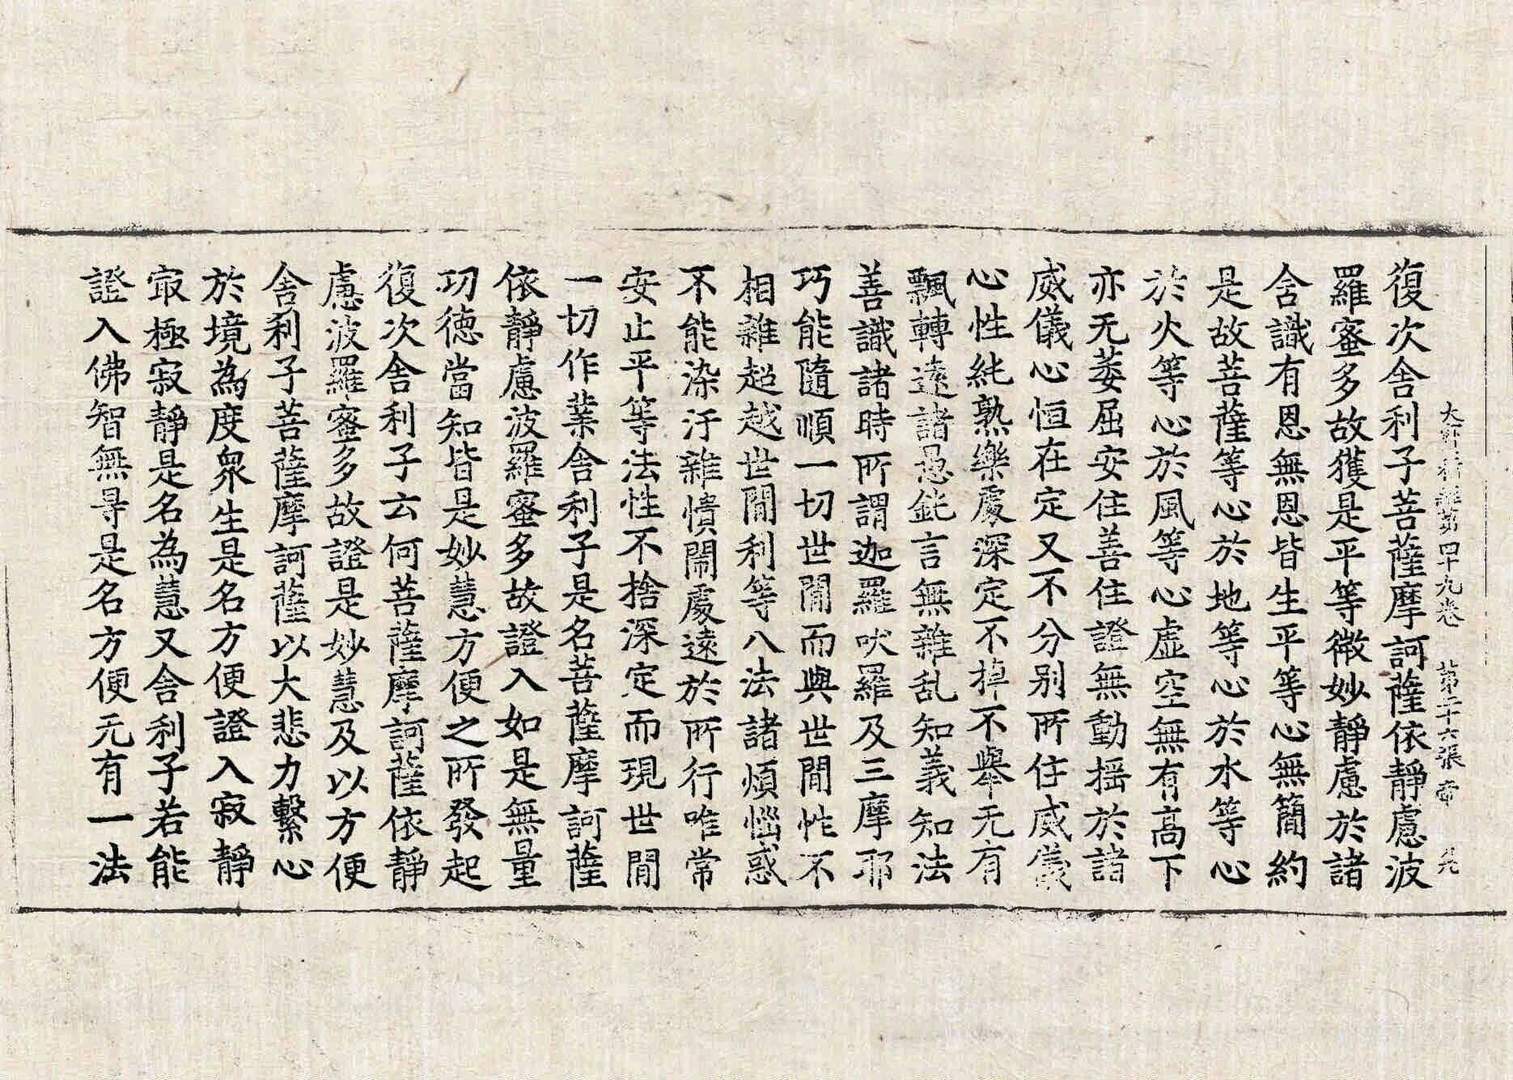 大寶積經第四十九卷 第二十六張 帝
復次舍利子菩薩摩訶薩依靜慮波
羅蜜多故獲是平等微妙靜慮於諸
含識有恩無恩皆生平等心無簡約
是故菩薩等心於地等心於水等心
於火等心於風等心虛空無有高下
亦无萎屈安住善住證無動揺於諸
威儀心恒在定又不分別所住威儀
心性純熟樂處深定不掉不舉无有
飄轉遠諸愚鈍言無雜乱知義知法
善識諸時所謂迦羅吠羅及三摩耶
巧能隨順一切世間而與世間性不
相雜超越世間利等八法諸煩惱惑
不能染汙雜憒鬧處遠於所行唯常
安止平等法性不捨深定而現世間
一切作業舍利子是名菩薩摩訶薩
依靜慮波羅蜜多故證入如是無量
功德當知皆是妙慧方便之所發起
復次舍利子云何菩薩摩訶薩依靜
慮波羅蜜多故證是妙慧及以方便
舍利子菩薩摩訶薩以大悲力繫心
於境為度衆生是名方便證入寂靜
㝡極寂靜是名為慧又舍利子若能
證入佛智無㝵是名方便无有一法